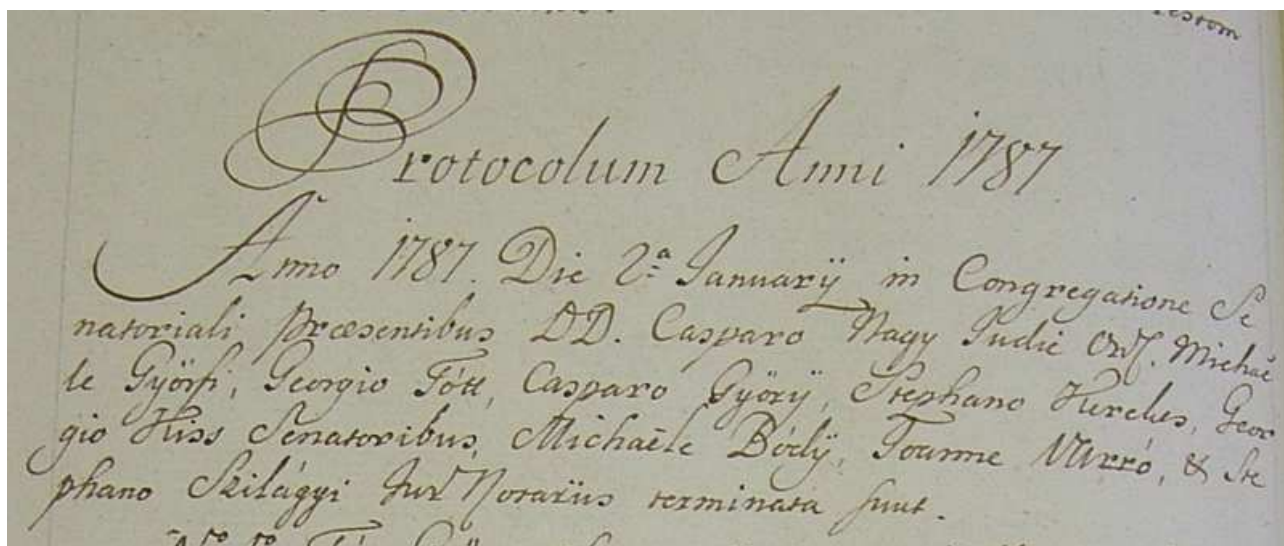 Protocolum Anni 1787
Anno 1787. Die 2ª Januarÿ in Congregatione Se
natoriali Præsentibus DD. Casparo Nagy Judic Ord. Michaë
le Györfi, Georgio Tótt, Casparo Györÿ, Stephano Kerekes, Geor
gio Kiss Senatoribus, Michaële Bódÿ, Joanne Varró, & Ste
phano Szilágyi Jur Notarÿs terminata sunt.